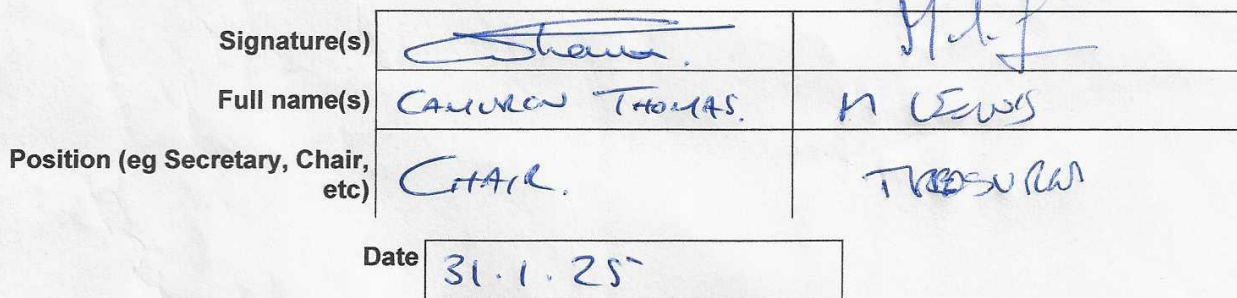 Signature(s)
Full name(s) CAMURON THOMAS. M LEWIS
Position (eg Secretary, Chair,
etc) CHAIR. TREASURER
Date 31.1.25